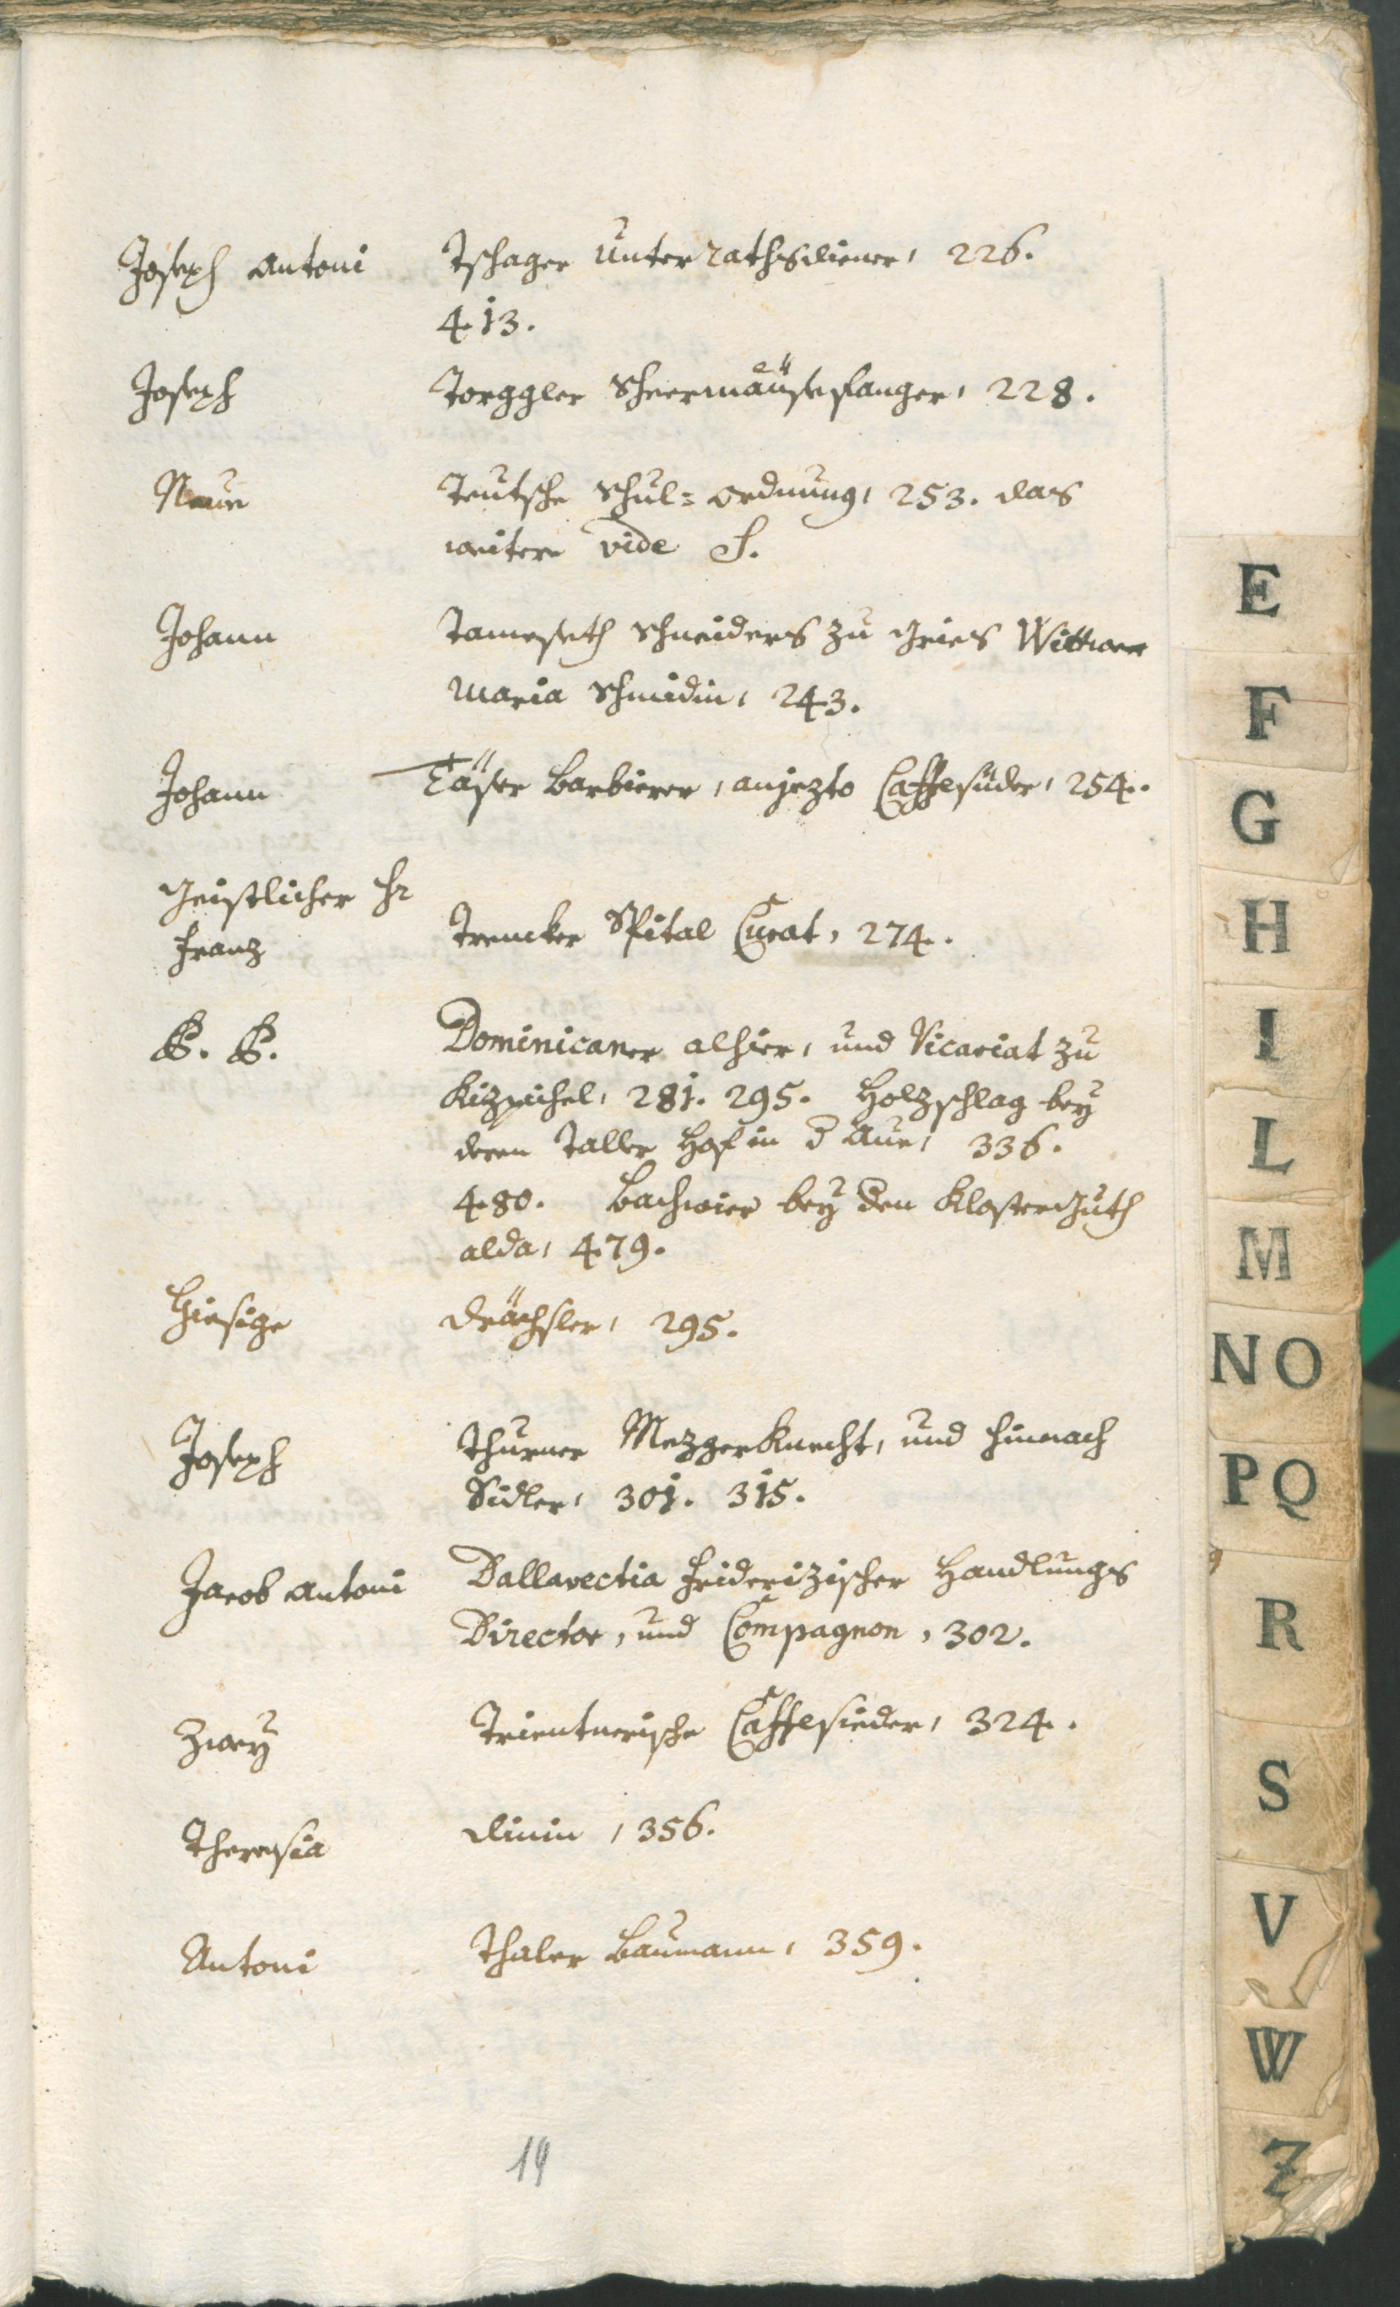 Joseph Antoni Tschager Unterrathsdiener, 226.
413.
Joseph Torggler Scheermäusefanger, 228.
Neue Teutsche Schul=ordnung, 253. das
weitere vide S.
Johann Tameseth Schneiders zu Gries Wittwer
Maria Schmidin, 243.
Johann Täser Barbierer, anjezto Caffesüder, 254.
Geistlicher Hr
Franz Trencker Spital Curat, 274.
P. P. Dominicaner alhier, und Vicariat zu
Kizpichel, 281. 295. Holzschlag bey
deren Taller Hof in d Aue, 336.
480. Bachwier bey den Kloster Guth
alda, 479.
Hiesige Drächsler, 295.
Joseph Thurner Mezgerknecht, und hinnach
Sidler, 301. 315.
Jacob Antoni Dallavectia Friderizischer Handlungs
Director, und Compagnon, 302.
Zwey Trientnerische Caffesieder, 324.
Theresia Dinin, 356.
Antoni Thaler Baumann, 359.
19
E
F
G
H
I
L
M
NO
PQ
R
S
V
W
Z